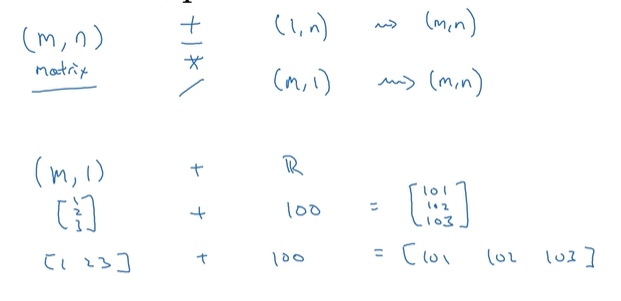 (m, n) + (1, n) ⇝ (m, n)
matrix - * / (m, 1) ⇝ (m, n)
(m, 1) + ℝ
[1 2 3] + 100 = [101 102 103]
[1 2 3] + 100 = [101 102 103]